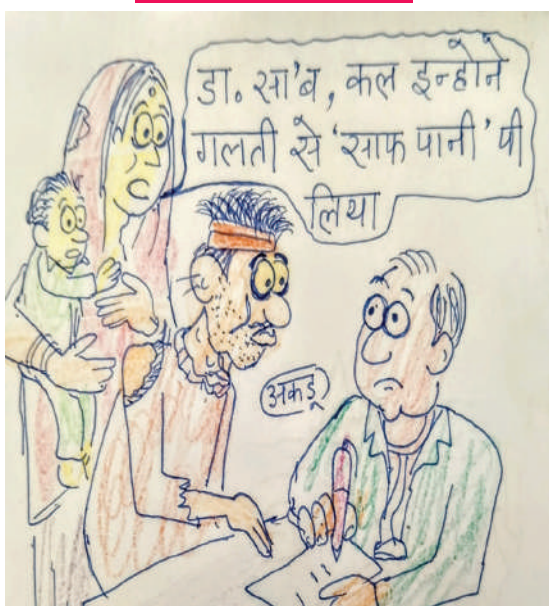 डा. सा'ब, कल इन्होंने
गलती से 'साफ पानी' पी
लिया
अकडू